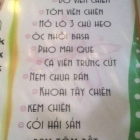 BÒ VIÊN CHIÊN
TÔM VIÊN CHIÊN
MÓ LÒ 3 CHÚ HEO
ỐC NHỒI BASA
PHO MAI QUE
CÁ VIÊN TRỨNG CÚT
NEM CHUA RÁN
KHOAI TÂY CHIÊN
KEM CHIÊN
GỎI HẢI SẢN